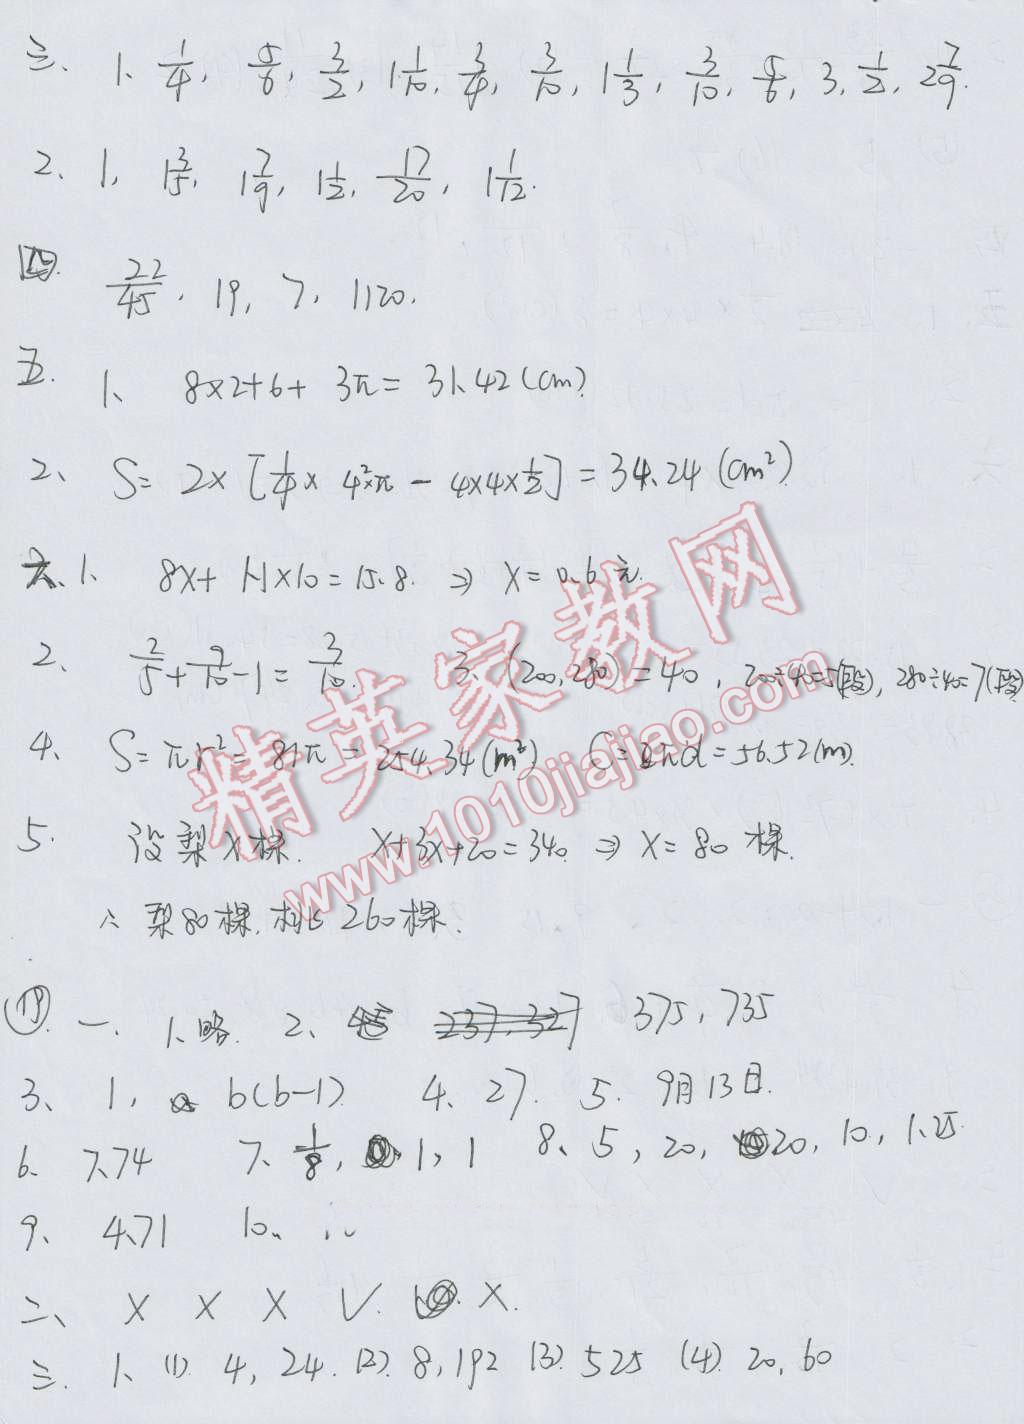 三、 1、 1/4, 5/6, 3/2, 1 1/10, 3/4, 3/10, 1 1/3, 3/10, 5/6, 3, 1/2, 2 7/9.
2、 1, 1 3/5, 1 7/9, 1 1/2, 17/20, 1 1/12.
四. 22/45, 19, 7, 1120.
五. 1、 8×2+6+ 3π = 31.42 (cm)
2、 S= 2× [1/4 × 4²×π - 4×4×1/2] = 34.24 (cm²)
六、1、 8x+ 1.1×10=15.8. ⇒ x=0.6元.
2、 2/5+9/10-1= 3/10. 3、(200, 280) = 40, 200÷40=5(段), 280÷40=7(段)
4、 S=πr²=81π= 254.34(m²) C=πd=56.52(m).
5、 设梨x棵. x+3x+20=340 ⇒ x=80 棵.
∴ 梨80棵, 桃 260棵.
一、 1、略. 2、 375, 735
3、 1, b(b-1) 4、27. 5、 9月13日.
6、 7.74 7、1/8, 1, 1 8、5, 20, 20, 10, 1.25
9、 4.71 10、
二、 × × × √. ×.
三、 1、 (1) 4, 24. (2). 8, 192 (3). 525 (4). 20, 60
精英家教网
www.1010jiajiao.com